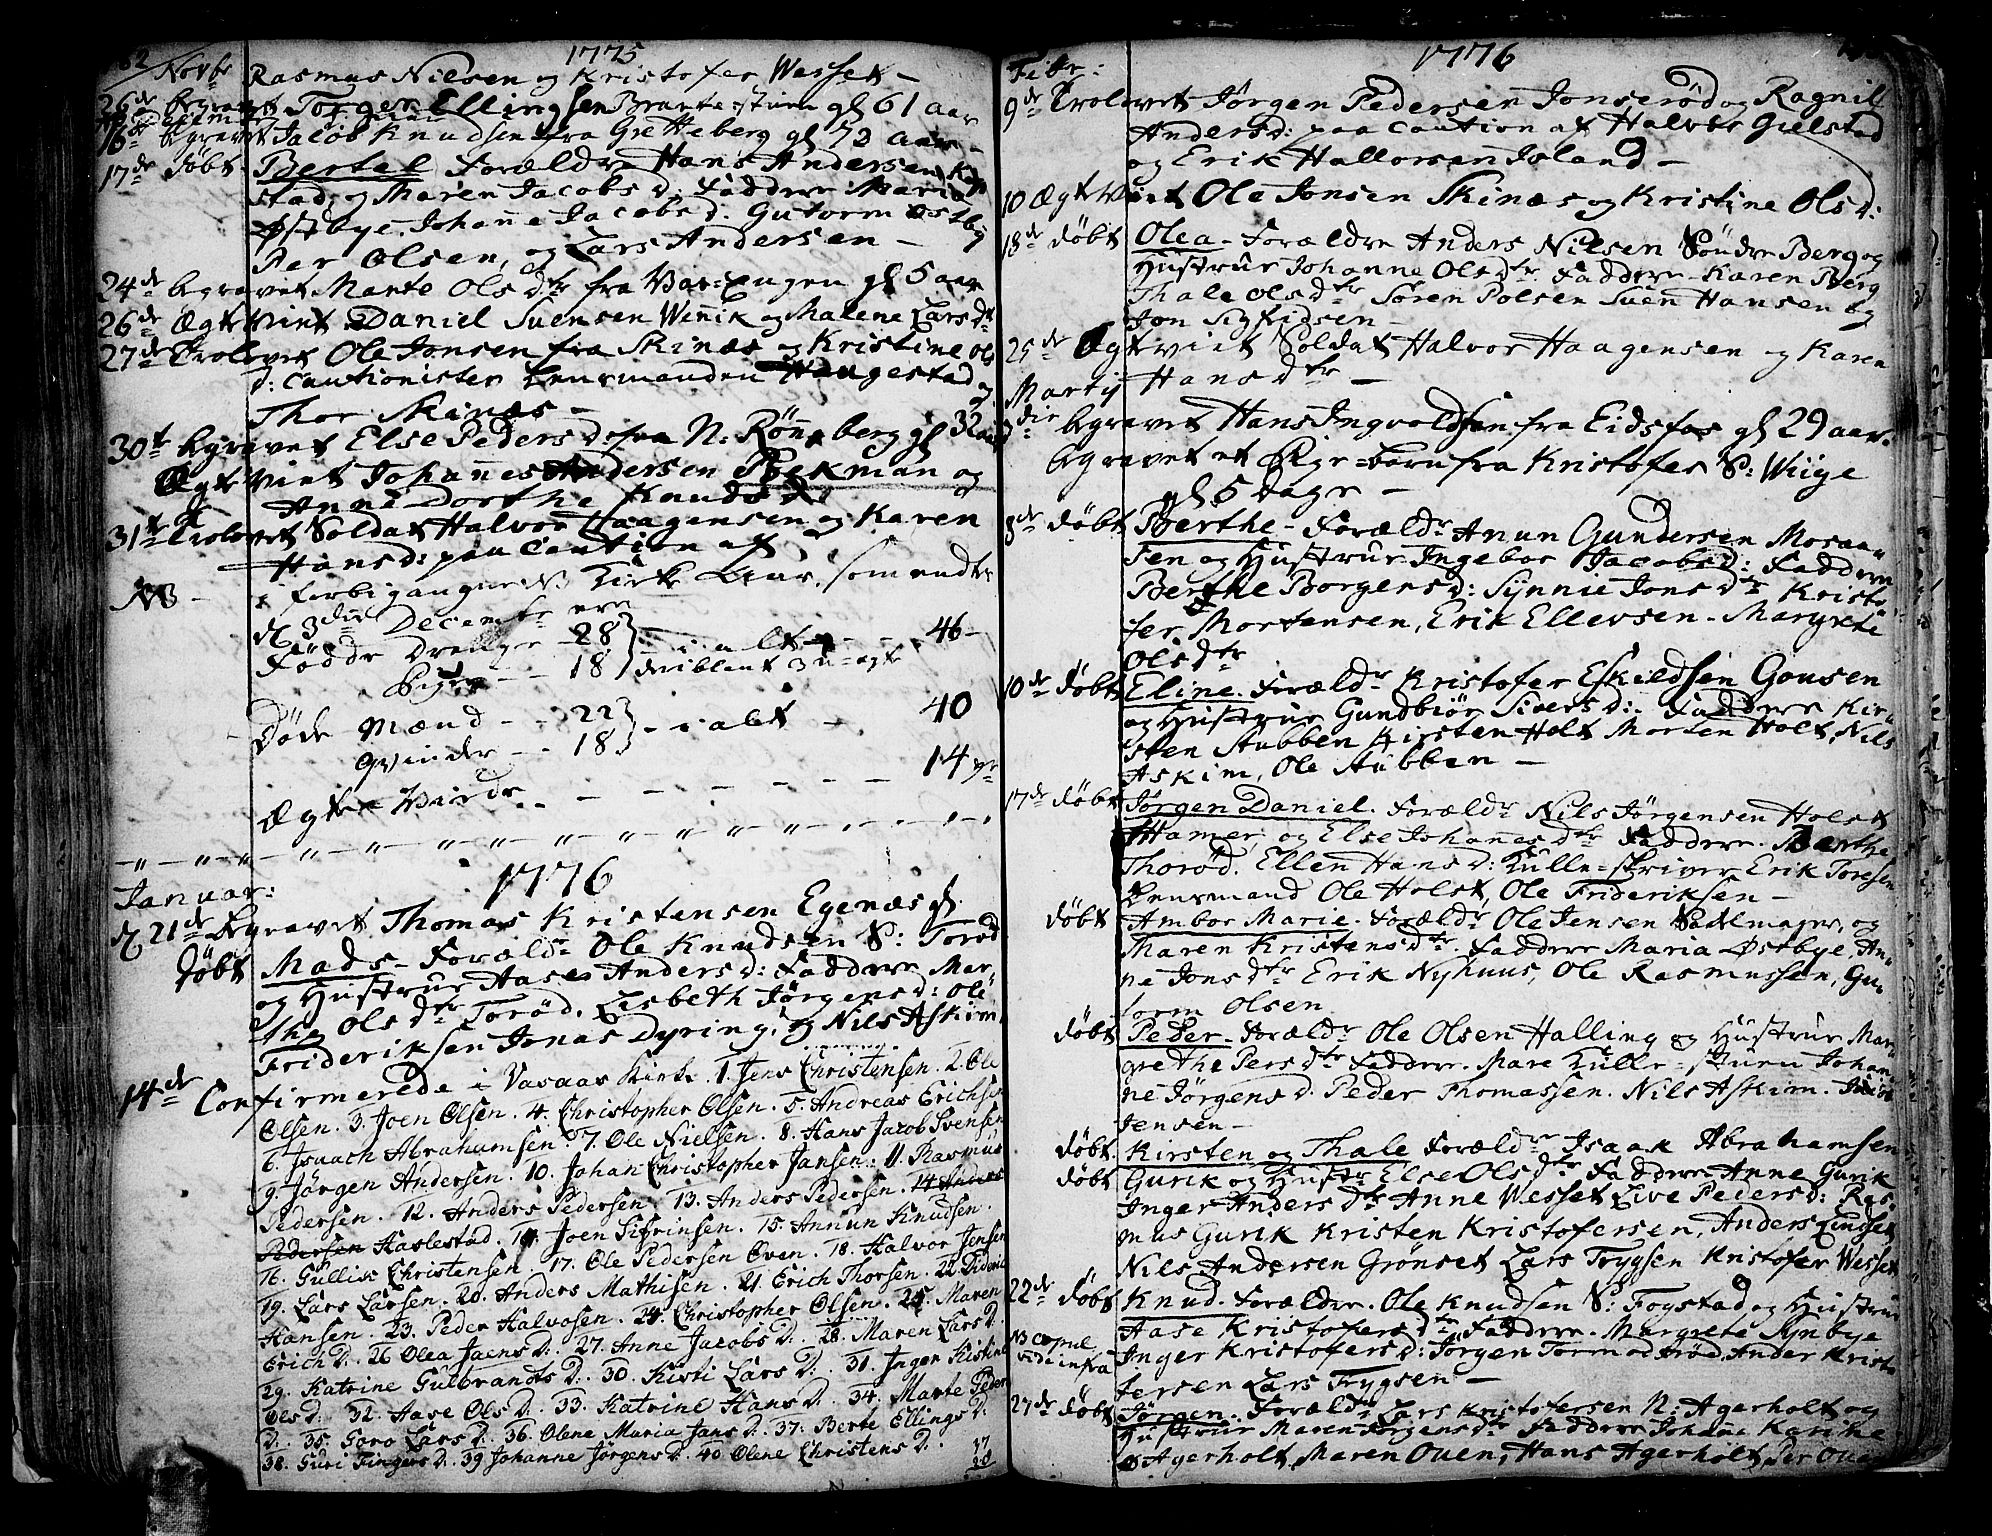 62
1775
Novb
Rasmus Nilsen og Kristofer Wesset -
26de begravet Torger Ellingsen Brante-stuen gl 61 aar
16de begravet Jacob Knudsen fra Gretteberg gl 73 aar -
17de døbt Bertel Forældr Hans Andersen
stad, og Maren Jacobsd: Faddere Maria
Østbye, Johanne Jacobsd. Gutorm Østby
Per Olsen, og Lars Andersen -
24de begravet Marte Olsdtr fra Engen gl 5 aar
26de Ægteviet Daniel Suensen Wenik og Malene Larsdtr
27de Trolovet Ole Jonsen fra Skinæs og Kristine Ols
d: cautionister Lensmanden Haugestad og
Thor Skinæs -
30te begravet Else Pedersd: fra N: Rønneberg gl 32 aar
Ægteviet Johannes Andersen Bekman og
Anne Dorthe Knudsd:
31te Trolovet Soldat Halvor Haagensen og Karen
Hansd: paa caution af
NB - I forbigangne Kirke Aar, som endte
d 3die Decembr ere
Fødde Drenge - 28 } - i alt - - - 46 -
Piger - - 18 } iblant 3 uægte
Døde Mænd - - 22 } - i alt - 40
Qvinder - - 18 }
Ægte-Viede - - - - - - - 14 par
1776
Januar:
d 21de begravet Thomas Kristensen Egenæs gl.
døbt Mads - Foreld: Ole Knudsen S: Torød
og Hustrue Aase Andersd: Faddere Mar-
the Olsdtr Torød, Lisbeth Jørgensd: Ole
Frideriksen Jonas Dyring, og Nils Askim.
14de Confirmerede i Vasaas Kirke. 1. Jens Christensen. 2. Ole
Olsen. 3. Joen Olsen. 4. Christopher Olsen. 5. Andreas Erichsen
6. Isaach Abrahamsen. 7. Ole Nielsen. 8. Hans Jacob Svensen
9. Jørgen Andersen. 10. Johan Christopher Jansen. 11. Rasmus
Pedersen. 12. Anders Pedersen. 13. Anders Pedersen. 14 Anders
Pedersen Haslestad. 14. Joen Sifrinsen. 15. Annun Knudsen.
16. Gullik Christensen. 17. Ole Pedersen Oven. 18. Halvor Jensen
19. Lars Larsen. 20. Anders Mathisen. 21. Erich Thorsen. 22. Dideric
Hansen. 23. Peder Halvosen. 24. Christopher Olsen. 25. Maren
Erich D. 26 Olea Jaens D: 27. Anne Jacobs D: 28. Maren Lars D.
29. Katrine Gulbrandts D: 30. Kisti Lars D: 31. Inger Kistine
Ols D: 32. Aase Ols D. 33. Katrine Hans D. 34. Marte Peder
D. 35. Goro Lars D. 36. Olene Maria Jans D: 37. Berte Ellings D:
38. Guri Fingers D. 39 Johanne Jørgens D: 40 Olene Christens D.
1776
Febr:
9de Trolovet Jørgen Pedersen Jonserød og Ragnil
Andersd: paa caution af Halvor Gielstad
og Erik Hallorsen Island -
10 Ægteviet Ole Jonsen Skinæs og Kristine Olsd:
18de døbt Olea - Forældre Anders Nilsen Søndre Berg og
Hustrue Johanne Olsdtr Faddere - Karen Berg
Thale Olsdtr Søren Polsen Suen Hansen by
Jon Sigfridsen -
25de Ægteviet Soldat Halvor Haagensen og Karen
Hansdtr -
Martij
3die begravet Hans Ingvoldsen fra Eidsfos gl 29 aar.
begravet et Pige-barn fra Kristofer S: Wiige
gl 5 dage -
8de døbt Berthe - Forældr Anun Gundersen Mosaa-
sen og Hustrue Ingebor Jacobsd: Faddere
Berthe Borgersd: Synnie Jonsdtr Kristo-
fer Mortensen, Erik Ellevsen - Margrete
Olsdtr
10de døbt Eline. Forældr Kristofer Eskildsen Gousen
og Hustrue Gundbiør Siversd: - Faddere Kir-
sten Stubben Kirsten Holt Morten Holt, Nils
Askim, Ole Stubben -
17de døbt Jørgen Daniel. Forældr Nils Jørgensen Holst
Hamer, og Else Johannesdtr Faddere. Berthe
Thorød. Ellen Hansd: Kulle-skriver Erik Toresen
Lensmand Ole Holst, Ole Frideriksen -
døbt Ambor Marie. Forældr Ole Jensen Sadelmager, og
Maren Kristensdtr. Faddere Maria Østbye, An-
ne Jonsdtr Erik Nyhuus, Ole Rasmussen, Gu-
torm Olsen
døbt Peder - Forældr Ole Olsen Halling og Hustrue Mar-
grethe Persdtr Faddere. Mare Kulle-stuen Johan-
ne Jørgensd. Peder Thomassen. Nils Askim.
Jensen -
døbt. Kirsten og Thale Forældr Isaak Abrahamsen
døbt Gurik og Hustr Else Olsdtr Faddere Anne Gurik
Inger Andersdtr Anne Wesset Live Pedersd: Ras-
mus Gurik Kristen Kristofersen, Anders Lindset
Nils Andersen Grønset Lars Trygsen Kristofer Wesset
22de døbt Knud. Forældre. Ole Knudsen S: Fogstad og Hustrue
Aase Kristofersdtr Faddere. Margrete Synbye
NB copul vide infra
Inger Kristofersd: Jørgen Tormodsrød, Ander Kristo-
fersen Lars Trygsen -
27de døbt Jørgen. Forældr Lars Kristofersen N: Agerholt og
Hustrue Maren Jørgensdtr Faddere Johanne Karine
Agerholt, Maren Ouen, Hans Agerholt, Per Ouen